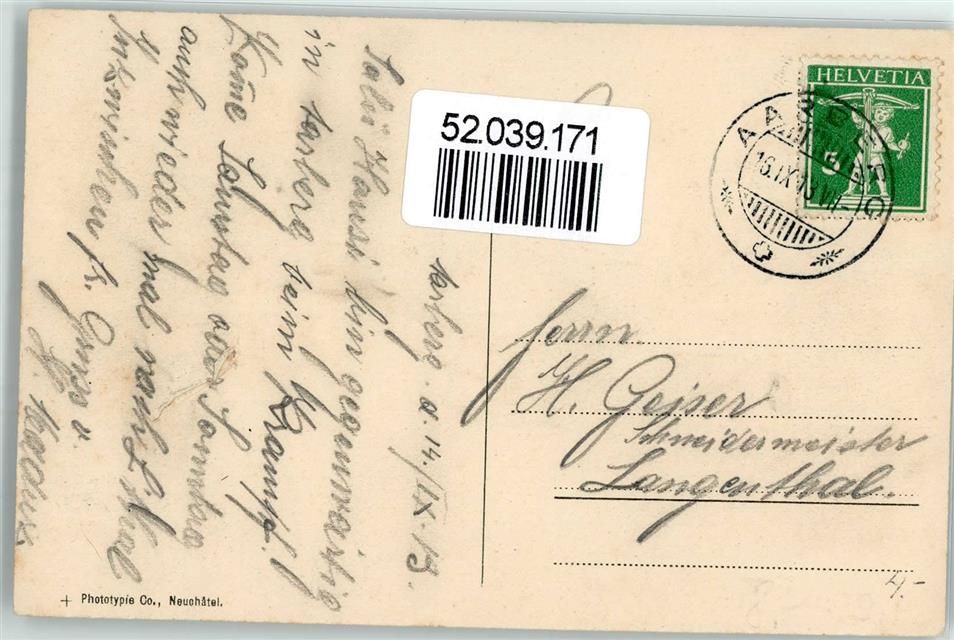 52.039.171
HELVETIA
5
AARBERG
16.IX.13
Aarberg. d. 14./IX.13.
Salü Hansi bin gegenwärtig
in Aarberg beim Krampf!
Kome Samstag oder Sonntag
auch wieder mal nach L'thal
Inzwischen fr. Gruss v.
Herrn
H. Geiser
Schneidermeister
Langenthal.
4.-
+ Phototypie Co., Neuchâtel.